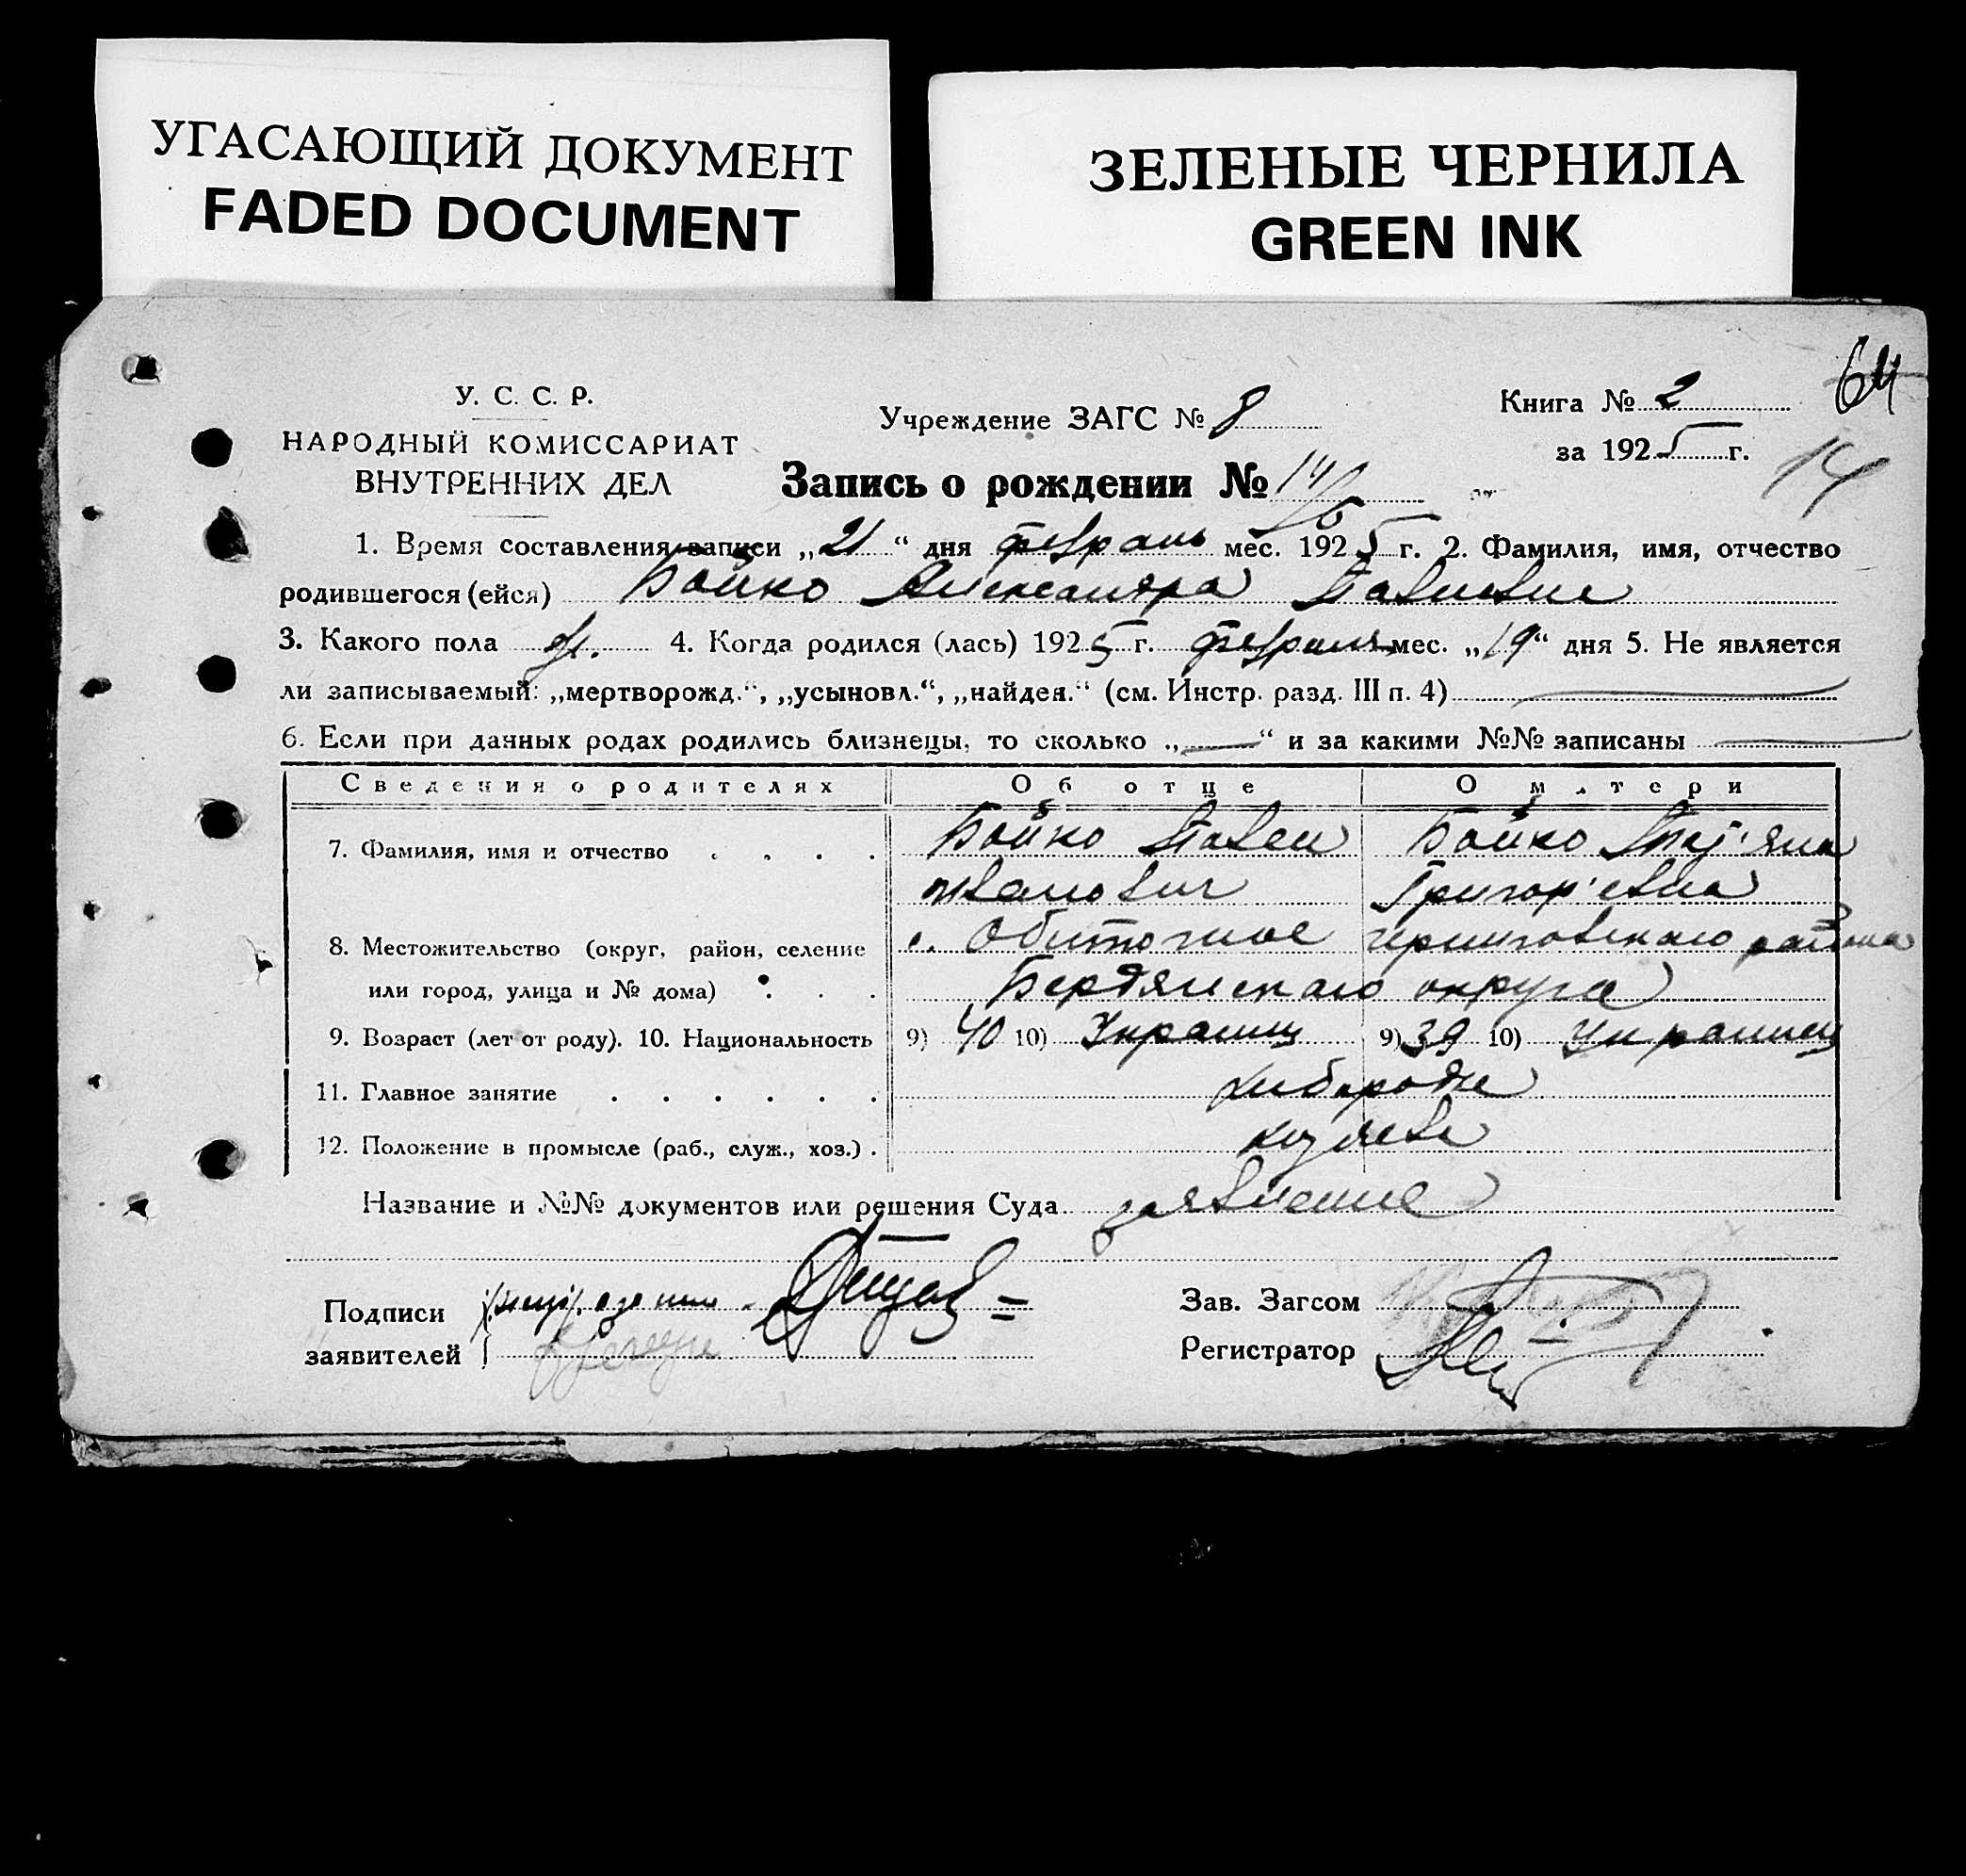 УГАСАЮЩИЙ ДОКУМЕНТ
FADED DOCUMENT
ЗЕЛЕНЫЕ ЧЕРНИЛА
GREEN INK
64
У. С. С. Р.
НАРОДНЫЙ КОМИССАРИАТ
ВНУТРЕННИХ ДЕЛ
Учреждение ЗАГС № 8
Книга № 2
за 1925 г.
14
Запись о рождении № 14
1. Время составления записи „21“ дня мес. 1925 г. 2. Фамилия, имя, отчество
родившегося (ейся) Бойко Александра
3. Какого пола 4. Когда родился (лась) 1925 г. февраля мес. „19“ дня 5. Не является
ли записываемый: „мертворожд.“, „усыновл.“, „найден.“ (см. Инстр. разд. III п. 4) —
6. Если при данных родах родились близнецы, то сколько „—“ и за какими №№ записаны —
Сведения о родителях Об отце О матери
7. Фамилия, имя и отчество Бойко Павел Бойко
Иванович Григор'евна
8. Местожительство (округ, район, селение с. Обиточное Черниговского района
или город, улица и № дома) Бердянского округа
9. Возраст (лет от роду). 10. Национальность 9) 40 10) Украинц 9) 39 10) Украинец
11. Главное занятие
12. Положение в промысле (раб., служ., хоз.)
Название и №№ документов или решения Суда заявление
Подписи
заявителей
Зав. Загсом
Регистратор